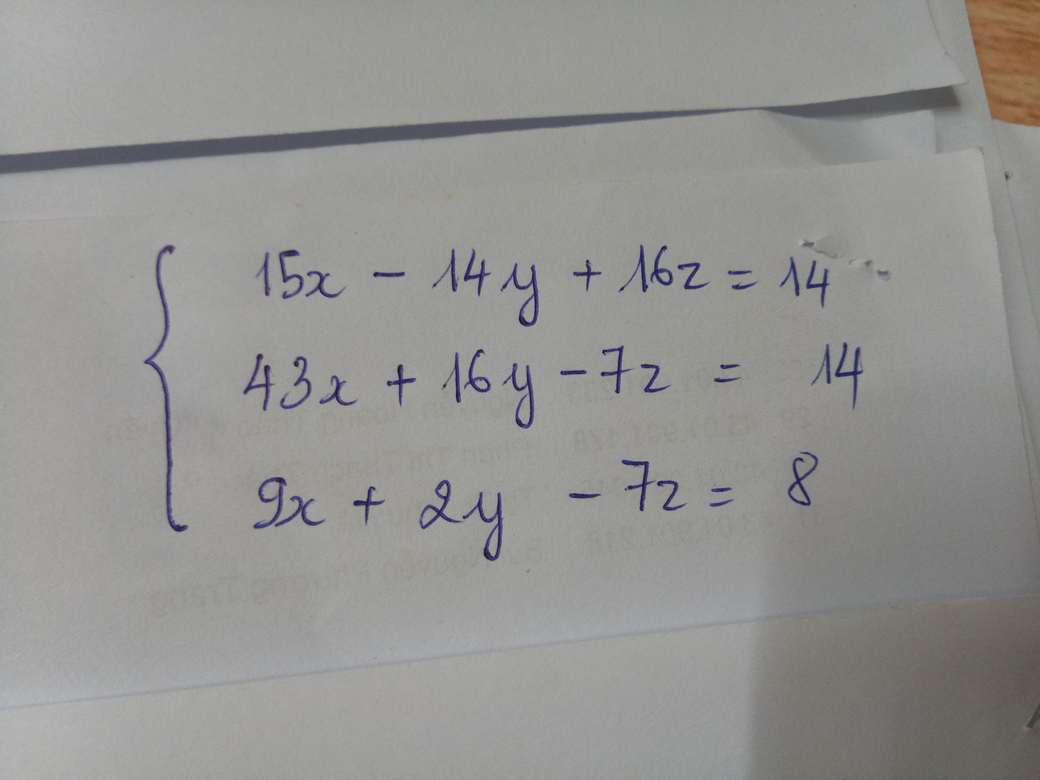 15x - 14y + 16z = 14
43x + 16y - 7z = 14
9x + 2y - 7z = 8